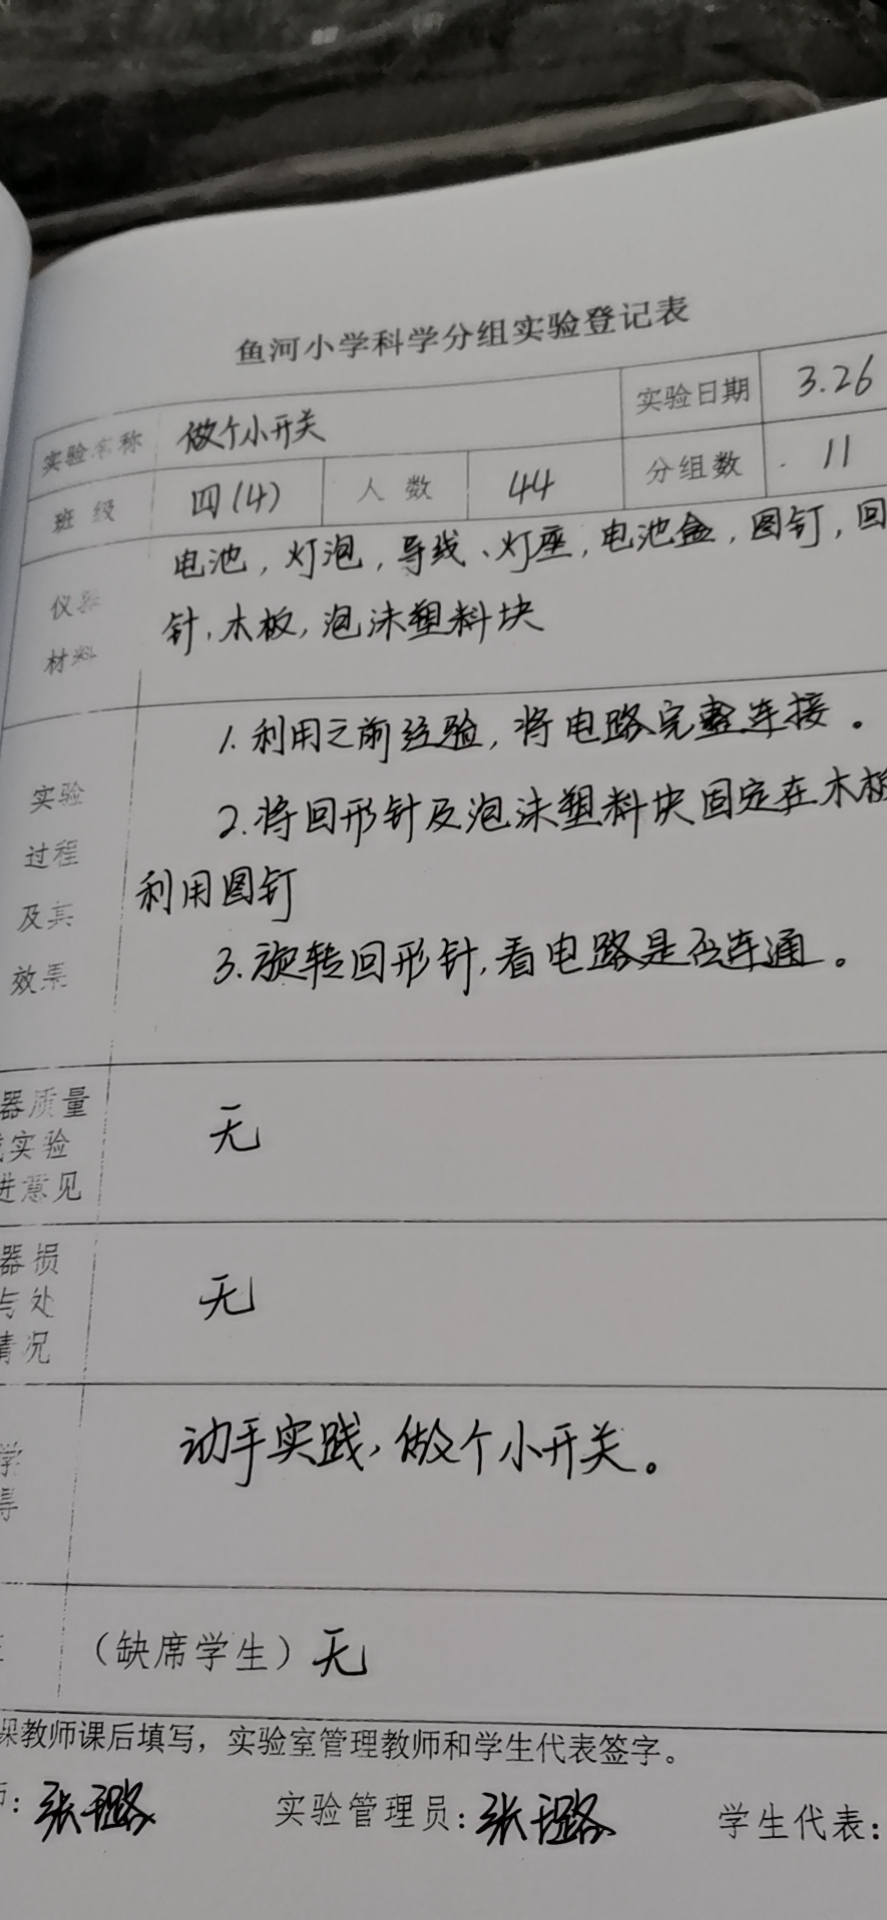 鱼河小学科学分组实验登记表
实验名称 做个小开关 实验日期 3.26
班级 四(4) 人数 44 分组数 11
仪器材料
电池，灯泡，导线、灯座，电池盒，图钉，回
针，木板，泡沫塑料块
实验过程及其效果
1.利用之前经验，将电路完整连接。
2.将回形针及泡沫塑料块固定在木板
利用图钉
3.旋转回形针，看电路是否连通。
器质量
实验
进意见
无
器损
与处
情况
无
学
得
动手实践，做个小开关。
（缺席学生）无
课教师课后填写，实验室管理教师和学生代表签字。
师：张璐 实验管理员：张璐 学生代表：